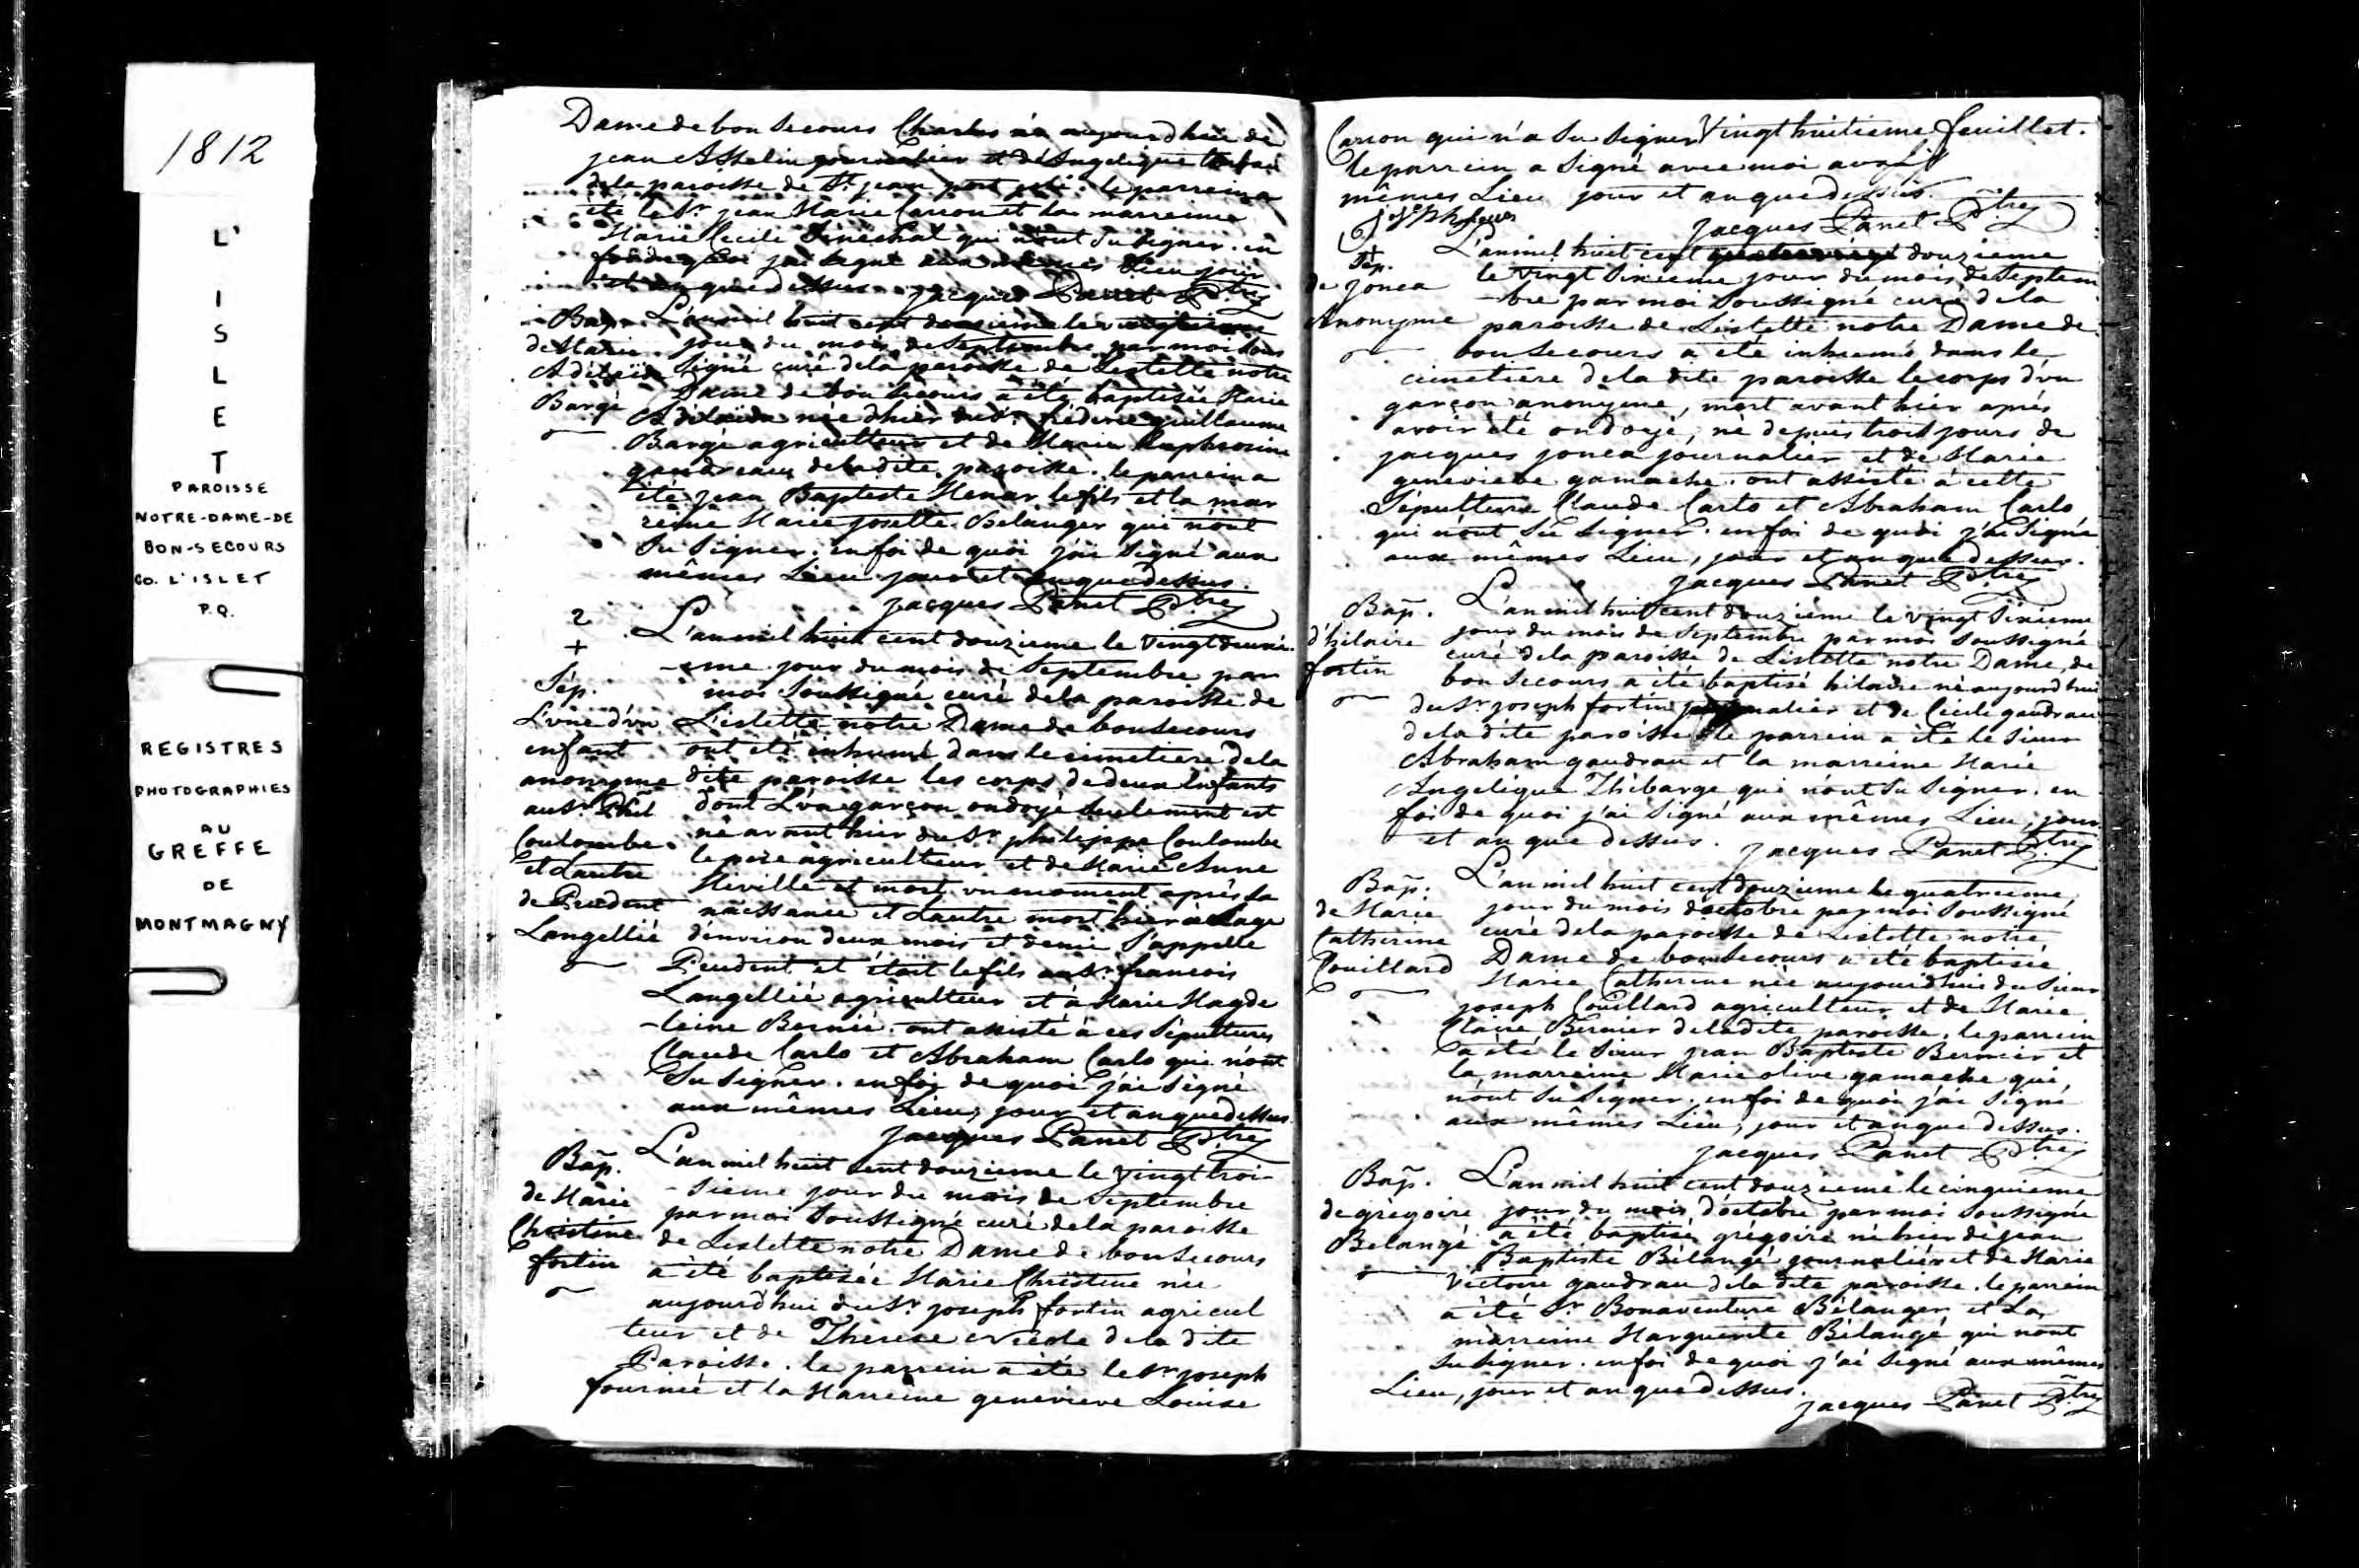 1812
L'
I
S
L
E
T
PAROISSE
NOTRE-DAME-DE
BON-SECOURS
CO. L'ISLET
P.Q.
REGISTRES
PHOTOGRAPHIES
AU
GREFFE
DE
MONTMAGNY
Dame de bon Secours Charles né aujourdhui de
jean Asselin journalier et d'Angelique
dela paroisse de St. jean port joli. le parrein a
été le Sr. jean Marie Carron et la marreine
Marie Cecile Senechal qui n'ont su signer. en
foi de quoi j'ai signé aux mêmes Lieu jour
et an que dessus. jacques Panet Ptre
Bap. L'an mil huit cent douzieme le
de Marie jour du mois de Septembre par moi sous
Adelaide signé curé dela paroisse de Lislette notre
Bargé Dame de bon Secours a été baptisée Marie
Adelaide née d'hier du Sr. frederic guillaume
Bargé agriculteur et de Marie Euphrosine
gaudreau dela dite paroisse. le parrein a
été jean Baptiste Menar le fils et la mar
reine Marie josette Belanger qui n'ont
su signer. en foi de quoi j'ai signé aux
mêmes Lieu jour et an que dessus.
jacques Panet Ptre
2
+ L'an mil huit cent douzieme le vingt deuxi
-eme jour du mois de Septembre par
Sép. moi Soussigné curé dela paroisse de
L'une d'un L'islette notre Dame de bon Secours
enfant ont été inhumé dans le cimetiere dela
anonyme dite paroisse les corps de deux Enfants
au Sr. Phil dont L'un garçon ondoyé seulement est
Coulombe né avant hier du Sr. philippe Coulombe
et Lautre le pere agriculteur et de Marie Anne
de Prudent Miville et mort un moment après sa
Langellié naissance et Lautre mort hier à Lage
d'environ deux mois et demie S'appelle
Prudent et était le fils au Sr. francois
Langellié agriculteur et à Marie Magde
-leine Bernié. ont assisté à ces Sépultures
Claude Carlo et Abraham Carlo qui n'ont
Su signer. en foi de quoi j'ai signé
aux mêmes Lieu, jour et an que dessus.
jacques Panet Ptre
Bap. L'an mil huit cent douzieme le vingt troi-
de Marie -sieme jour du mois de Septembre
Christine par moi Soussigné curé dela paroisse
fortin de Lislette notre Dame de bon Secours
a été baptisée Marie Christine née
aujourd'hui du Sr. joseph fortin agricul
teur et de Thérese Nicole dela dite
Paroisse. le parrein a été le Sr joseph
fournié et la Marreine genevieve Louise
Carron qui n'a su signer Vingt huitieme feuillet.
le parrein a signé avec moi aux
mêmes Lieu jour et an que dessus.
jacques Panet Ptre
+ L'an mil huit cent douzieme
Sép. le vingt sixieme jour du mois de Septem
de joncá -bre par moi soussigné curé dela
Anonyme paroisse de Lislette notre Dame de
bon Secours a été inhumé dans le
cimetiere dela dite paroisse le corps d'un
garçon anonyme, mort avant hier après
avoir été ondoyé, né depuis trois jours de
jacques joncá journalier et de Marie
genevieve gamache. ont assisté à cette
Sépulture Claude Carlo et Abraham Carlo
qui n'ont su signer. en foi de quoi j'ai signé
aux mêmes Lieu, jour et an que dessus.
jacques Panet Ptre
Bap. L'an mil huit cent douzieme le vingt sixieme
d'hilaire jour du mois de Septembre par moi soussigné
fortin curé dela paroisse de Lislette notre Dame de
bon Secours a été baptisé hilaire né aujourd'hui
du Sr. joseph fortin journalier et de Cecile gaudrau
dela dite paroisse le parrein a été le Sieur
Abraham gaudrau et la marreine Marie
Angelique Thibarge qui n'ont su signer. en
foi de quoi j'ai signé aux mêmes Lieu, jour
et an que dessus. jacques Panet Ptre
Bap. L'an mil huit cent douzieme le quatrieme
de Marie jour du mois doctobre par moi soussigné
Catherine curé dela paroisse de Lislette notre
Couillard Dame de bon Secours a été baptisée
Marie Catherine née aujourd'hui du Sieur
joseph Couillard agriculteur et de Marie
Claire Bernier dela dite paroisse. le parrein
a été le Sieur jean Baptiste Bernier et
la marreine Marie olive gamache qui
n'ont su signer. en foi de quoi j'ai signé
aux mêmes Lieu, jour et an que dessus.
jacques Panet Ptre
Bap. L'an mil huit cent douzieme le cinquieme
de gregoire jour du mois d'octobre par moi soussigné
Belangé a été baptisé grégoire né hier de jean
Baptiste Bélangé journalier et de Marie
Victoire gaudrau dela dite paroisse. le parrein
a été Sr. Bonaventure Bélanger et La
marreine Marguerite Bélangé qui n'ont
su signer. en foi de quoi j'ai signé aux mêmes
Lieu, jour et an que dessus.
jacques Panet Ptre